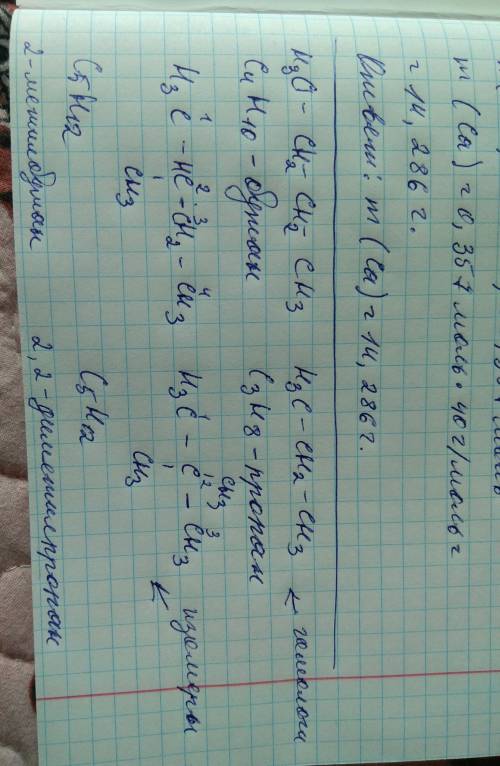 m (Ca) = 0,357 моль · 40 г/моль =
= 14,286 г.
Ответ: m (Ca) = 14,286 г.
H3C - CH2 - CH2 - CH3 H3C - CH2 - CH3 ← гомологи
C4H10 - бутан C3H8 - пропан
CH3
1 2 3 4 1 2 3
H3C - HC - CH2 - CH3 H3C - C - CH3 ← изомеры
CH3 CH3
C5H12 C5H12
2-метилбутан 2,2-диметилпропан